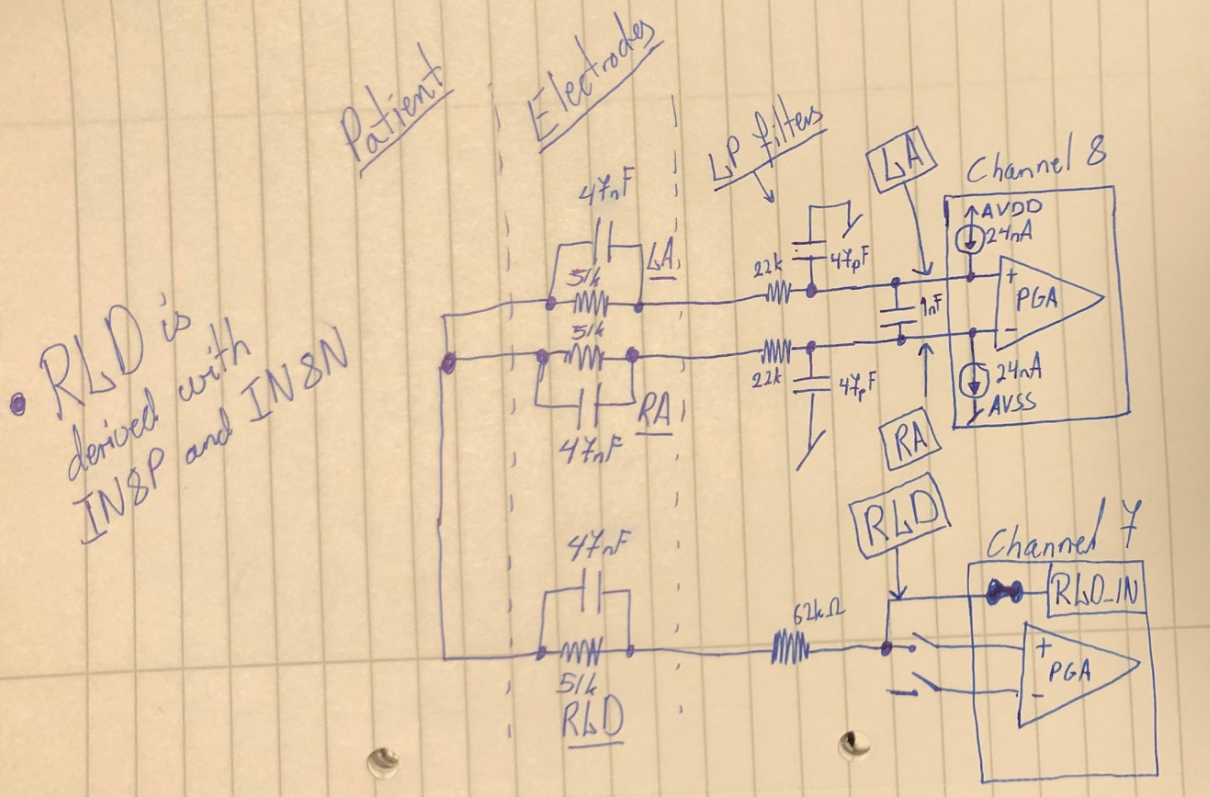 Patient
Electrodes
LP filters
LA
Channel 8
47nF
AVDD
24nA
51k
LA
22k
47pF
+
PGA
-
1nF
51k
22k
47pF
24nA
AVSS
RA
47nF
RA
• RLD is
derived with
IN8P and IN8N
RLD
Channel 7
47nF
RLD_IN
62kΩ
+
PGA
-
51k
RLD